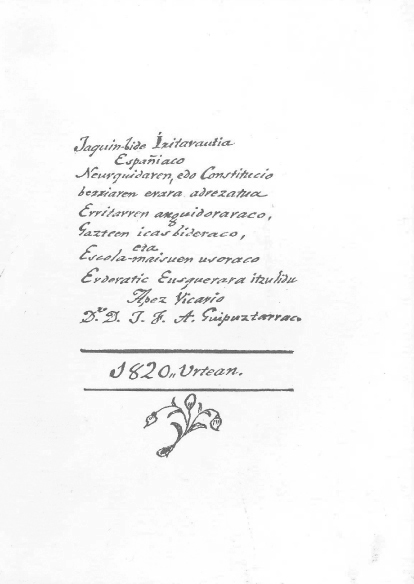 Jaquin-bide Iritarautia
Españiaco
Neurquidaren, edo Constitucio
berriaren erara adrezatua
Erritarren arguidoraraco,
Gazteen icasbideraco,
eta
Escola-maisuen usoraco
Erderatic Eusquerara itzulidu
Apez Vicario
Dn. D. J. F. A. Guipuztarrac
1820,, Urtean.